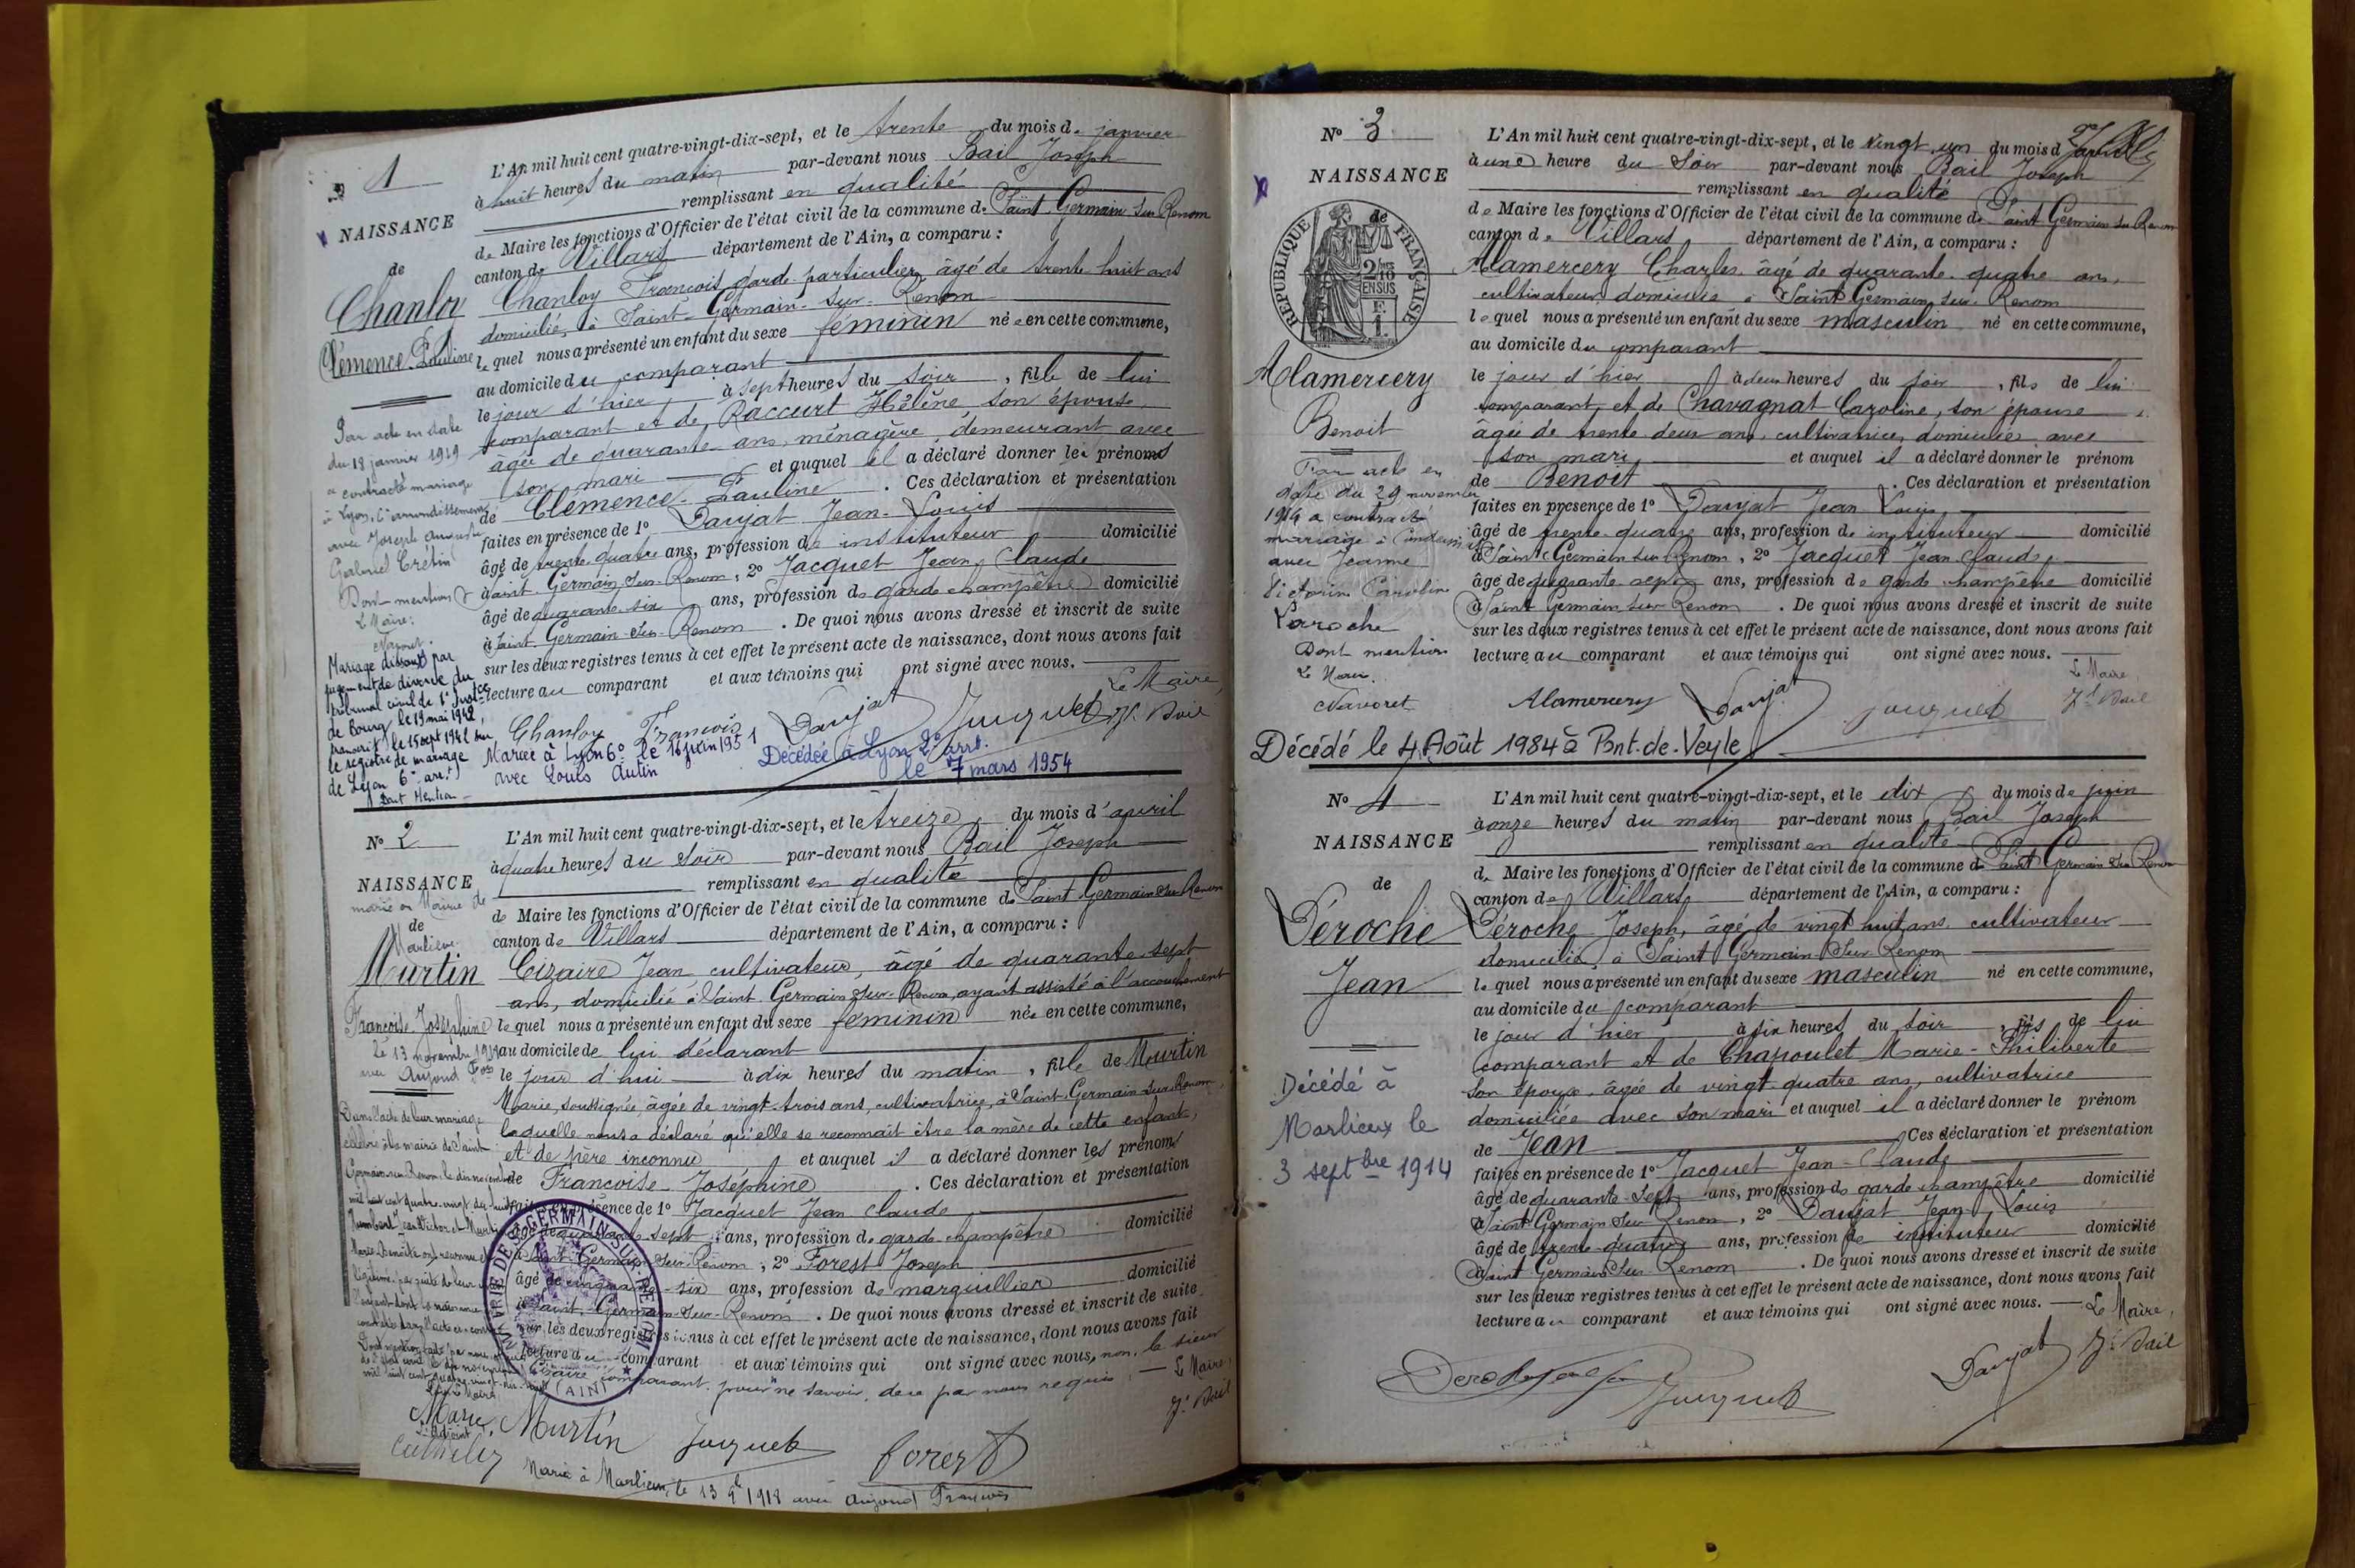 1
NAISSANCE
de
Chanloy
Clémence Pauline
L'An mil huit cent quatre-vingt-dix-sept, et le trente du mois de janvier
à huit heures du matin par-devant nous Bail Joseph
remplissant en qualité
de Maire les fonctions d'Officier de l'état civil de la commune de Saint Germain sur Renom
canton de Villars département de l'Ain, a comparu :
Chanloy François, garde particulier, âgé de trente huit ans
domicilié, à Saint-Germain-sur-Renom
lequel nous a présenté un enfant du sexe féminin née en cette commune,
au domicile du comparant
le jour d'hier à sept heures du soir, fille de lui
comparant et de Raccurt Hélène son épouse,
âgée de quarante ans, ménagère, demeurant avec
son mari et auquel il a déclaré donner les prénoms
de Clémence-Pauline. Ces déclaration et présentation
faites en présence de 1° Daujat Jean-Louis
âgé de trente quatre ans, profession de instituteur domicilié
à Saint Germain sur Renom, 2° Jacquet Jean Claude
âgé de quarante six ans, profession de garde champêtre domicilié
à Saint Germain-sur-Renom. De quoi nous avons dressé et inscrit de suite
sur les deux registres tenus à cet effet le présent acte de naissance, dont nous avons fait
lecture au comparant et aux témoins qui ont signé avec nous.
Le Maire,
Chanloy François Daujat Jacquet Jh. Bail
Par acte en date
du 18 janvier 1919
a contracté mariage
à Lyon, 6e arrondissement
avec Joseph Auguste
Gabriel Crétin
Dont mention
Le Maire:
Navoret
Mariage dissous par
jugement de divorce du
tribunal civil de 1e Instce
de Bourg le 19 mai 1942,
transcrit le 15 sept 1942 sur
le registre de mariage
de Lyon 6e arr.t
Dont Mention
Mariée à Lyon 6° le 16 juin 1951
avec Louis Autin
Décédée à Lyon 2e arrt.
le 7 mars 1954
N° 2
NAISSANCE
de
Murtin
Françoise-Joséphine
marié en Mairie de
Marlieux
le 13 novembre 1918
avec Aujoud Fois
L'An mil huit cent quatre-vingt-dix-sept, et le treize du mois d'avril
à quatre heures du soir par-devant nous Bail Joseph
remplissant en qualité
de Maire les fonctions d'Officier de l'état civil de la commune de Saint Germain sur Renom
canton de Villars département de l'Ain, a comparu :
Cizaire Jean, cultivateur, âgé de quarante sept
ans, domicilié à Saint Germain sur Renom, ayant assisté à l'accouchement
lequel nous a présenté un enfant du sexe féminin née en cette commune,
au domicile de lui déclarant
le jour d'hui à dix heures du matin, fille de Murtin
Marie, soussignée, âgée de vingt-trois ans, cultivatrice, à Saint Germain sur Renom,
laquelle nous a déclaré qu'elle se reconnait être la mère de cette enfant,
et de père inconnu et auquel il a déclaré donner les prénoms
de Françoise-Joséphine. Ces déclaration et présentation
faites en présence de 1° Jacquet Jean Claude
âgé de quarante sept ans, profession de garde champêtre domicilié
à Saint Germain sur Renom, 2° Forest Joseph
âgé de cinquante-six ans, profession de marguillier domicilié
à Saint-Germain-sur-Renom. De quoi nous avons dressé et inscrit de suite
sur les deux registres tenus à cet effet le présent acte de naissance, dont nous avons fait
lecture au comparant et aux témoins qui ont signé avec nous, non le sieur
Cizaire comparant pour ne savoir, de ce par nous requis. Le Maire,
Jh. Bail
Marie Murtin Jacquet Forest
MAIRIE DE ST GERMAIN SUR RENOM
(AIN)
Dans l'acte de leur mariage
célébré à la mairie de Saint
Germain sur Renom
Marié à Marlieux, le 13 9bre 1918 avec Aujoud François
N° 3
NAISSANCE
de
RÉPUBLIQUE FRANÇAISE
2/10 EN SUS
Alamercery
Benoit
L'An mil huit cent quatre-vingt-dix-sept, et le vingt un du mois d
à une heure du soir par-devant nous Bail Joseph
remplissant en qualité
de Maire les fonctions d'Officier de l'état civil de la commune de Saint Germain sur Renom
canton de Villars département de l'Ain, a comparu :
Alamercery Charles, âgé de quarante-quatre ans,
cultivateur, domicilié à Saint Germain sur Renom
lequel nous a présenté un enfant du sexe masculin né en cette commune,
au domicile du comparant
le jour d'hier à deux heures du soir, fils de lui
comparant, et de Chavagnat Caroline, son épouse
âgée de trente deux ans, cultivatrice, domiciliée avec
son mari et auquel il a déclaré donner le prénom
de Benoit. Ces déclaration et présentation
faites en présence de 1° Daujat Jean Louis
âgé de trente quatre ans, profession de instituteur domicilié
à Saint Germain sur Renom, 2° Jacquet Jean Claude
âgé de quarante sept ans, profession de garde champêtre domicilié
à Saint Germain sur Renom. De quoi nous avons dressé et inscrit de suite
sur les deux registres tenus à cet effet le présent acte de naissance, dont nous avons fait
lecture au comparant et aux témoins qui ont signé avec nous.
Le Maire,
Alamercery Daujat Jacquet Jh Bail
Par acte en
date du 29 novembre
1919 a contracté
mariage à
avec Jeanne
Victorine Caroline
Laroche
Dont mention
Le Maire
Navoret
Décédé le 4 Août 1984 à Pont-de-Veyle
N° 4
NAISSANCE
de
Déroche
Jean
L'An mil huit cent quatre-vingt-dix-sept, et le dix du mois de juin
à onze heures du matin par-devant nous Bail Joseph
remplissant en qualité
de Maire les fonctions d'Officier de l'état civil de la commune de Saint Germain sur Renom
canton de Villars département de l'Ain, a comparu :
Déroche Joseph, âgé de vingt huit ans, cultivateur
domicilié, à Saint Germain sur Renom
lequel nous a présenté un enfant du sexe masculin né en cette commune,
au domicile du comparant
le jour d'hier à six heures du soir, fils de lui
comparant et de Chapoulet Marie-Philiberte
son épouse, âgée de vingt-quatre ans, cultivatrice
domiciliée avec son mari et auquel il a déclaré donner le prénom
de Jean Ces déclaration et présentation
faites en présence de 1° Jacquet Jean-Claude
âgé de quarante-sept ans, profession de garde champêtre domicilié
à Saint Germain sur Renom, 2° Daujat Jean Louis
âgé de trente-quatre ans, profession de instituteur domicilié
à Saint Germain sur Renom. De quoi nous avons dressé et inscrit de suite
sur les deux registres tenus à cet effet le présent acte de naissance, dont nous avons fait
lecture au comparant et aux témoins qui ont signé avec nous. Le Maire,
Jacquet Daujat Jh. Bail
Décédé à
Marlieux le
3 septbre 1914